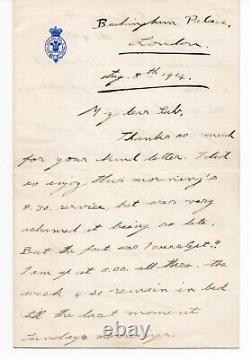 Buckingham Palace,
London.
Aug. 8th 1914.
My dear
Thanks so much
for your kind letter. I did
so enjoy this morning's
8.30. service, but was very
ashamed at being so late.
But the fact was I overslept!!
I am up at 6.00. all thro. the
week & so remain in bed
till the last moment
Sunday mornings.